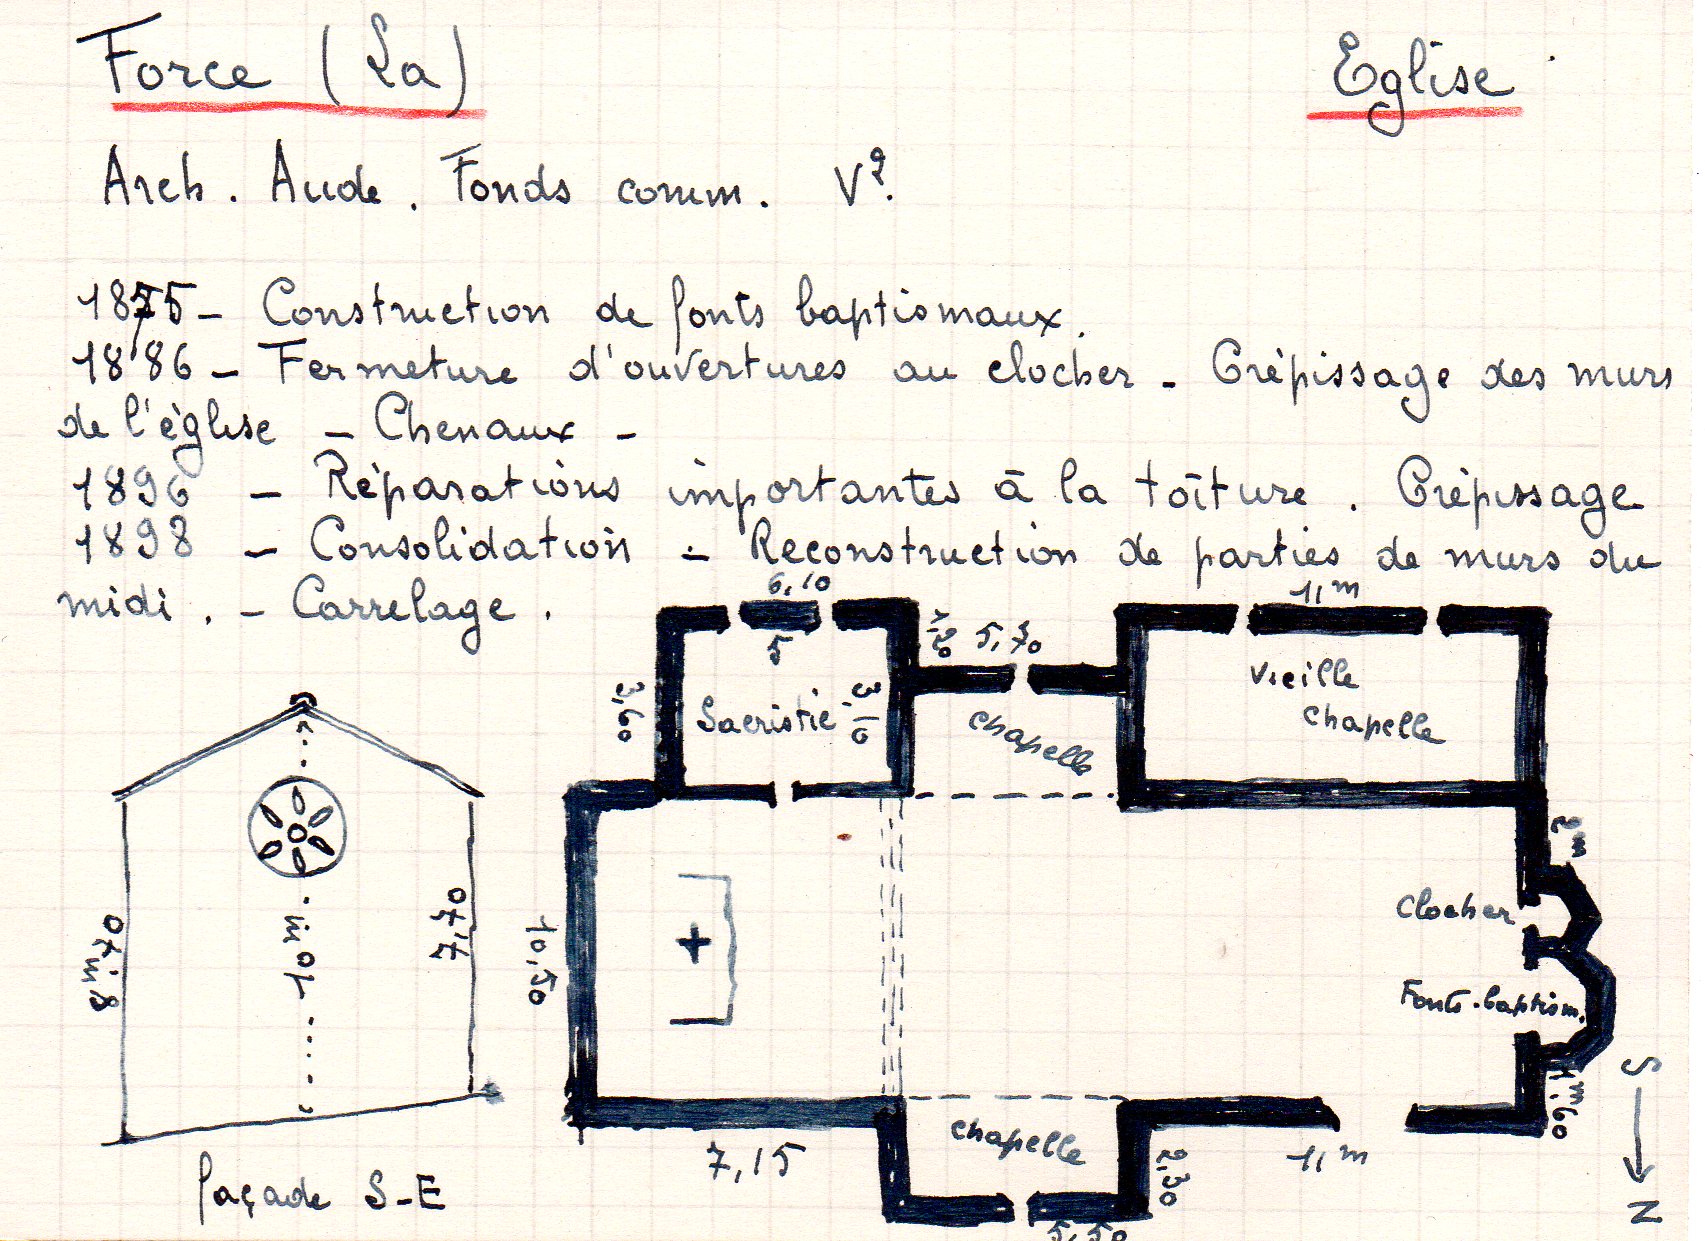 Force (La)
Eglise
Arch. Aude. Fonds comm. V².
1875 - Construction de fonts baptismaux.
1886 - Fermeture d'ouvertures au clocher - Crépissage des murs
de l'église - Chenaux -
1896 - Réparations importantes à la toiture. Crépissage
1898 - Consolidation - Reconstruction de parties de murs du
midi. - Carrelage.
6,10
11m
5
5,70
3,60
Sacristie
3,10
chapelle
Vieille
chapelle
2m
8m70
10m
7,70
10,50
+
Clocher
Fonts-baptism.
S
N
1m,60
chapelle
7,15
2,30
11m
5,50
façade S-E